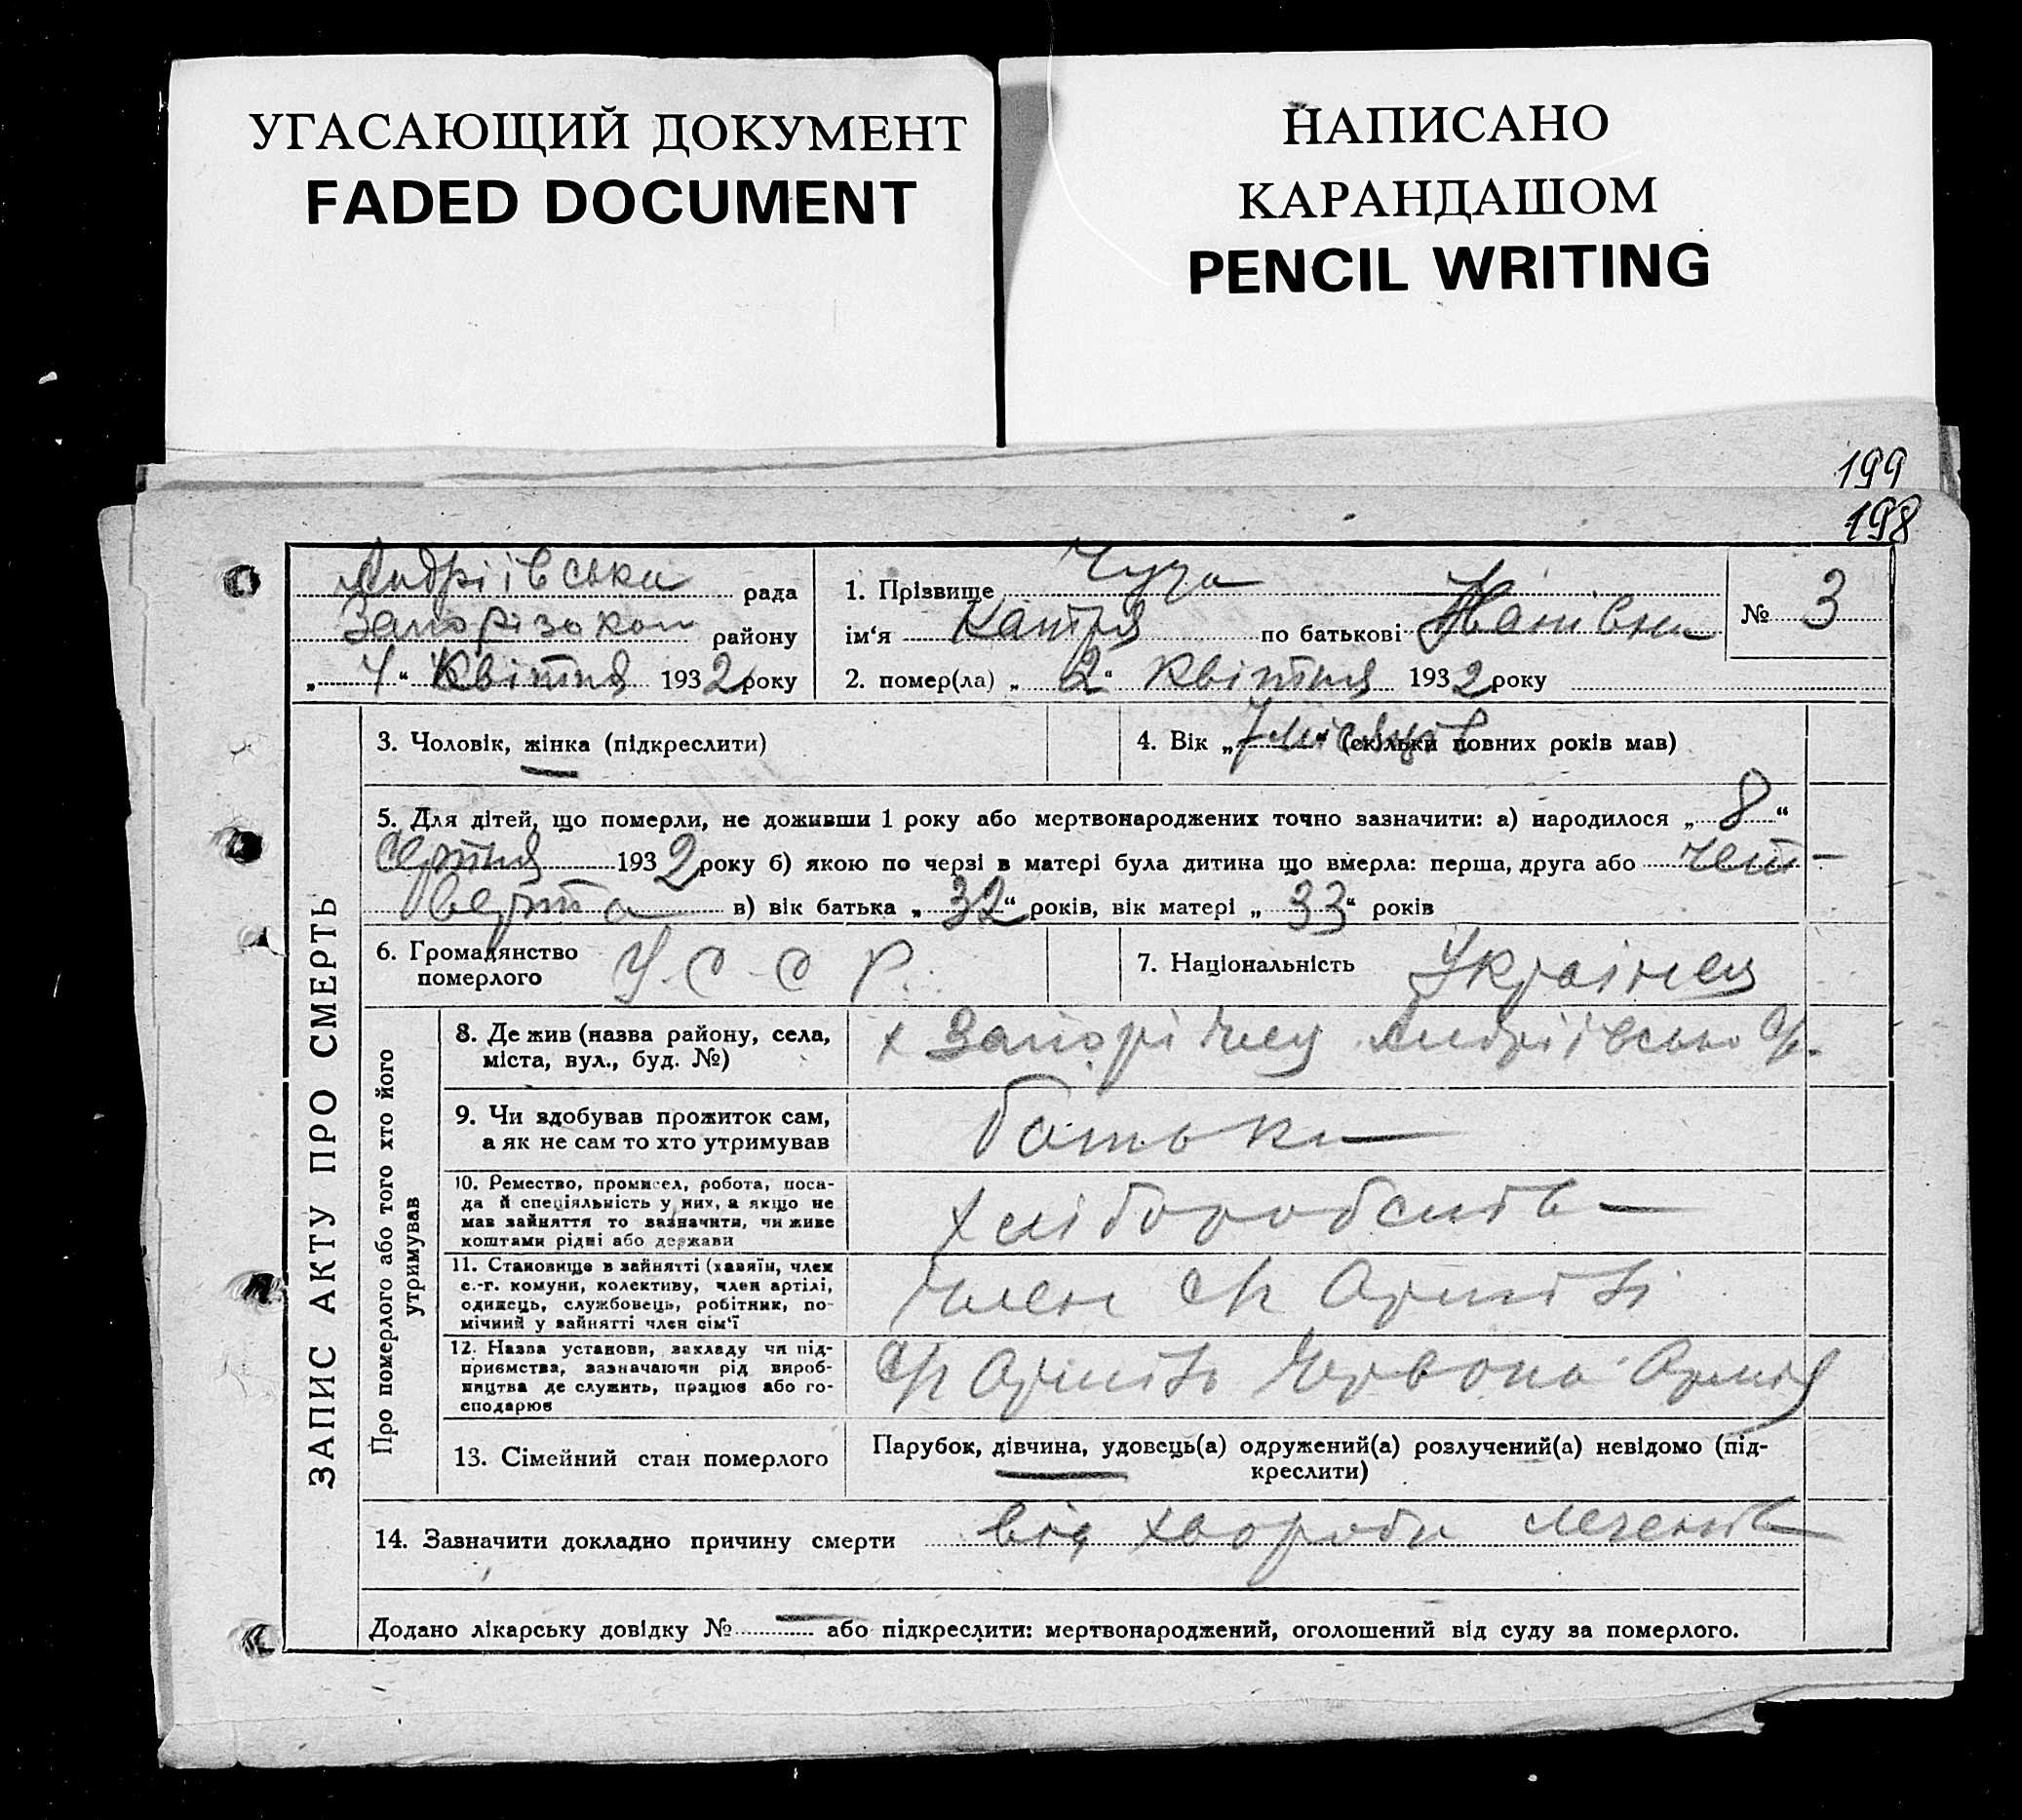 УГАСАЮЩИЙ ДОКУМЕНТ
FADED DOCUMENT
НАПИСАНО
КАРАНДАШОМ
PENCIL WRITING
199
198
Андріївська рада
району
„4“ Квітня 1932 року
1. Прізвище Чуча
ім‘я Катря по батькові
№ 3
2. помер(ла) „2“ Квітня 1932 року
ЗАПИС АКТУ ПРО СМЕРТЬ
3. Чоловік, жінка (підкреслити)
4. Вік „7 місяців“ (скільки повних років мав)
5. Для дітей, що померли, не доживши 1 року або мертвонароджених точно зазначити: а) народилося „8“
Серпня 1932 року б) якою по черзі в матері була дитина що вмерла: перша, друга або чет-
верта в) вік батька „32“ років, вік матері „33“ років
6. Громадянство
померлого У.С.С.Р.
7. Національність
Про померлого або того хто його
утримував
8. Де жив (назва району, села,
міста, вул., буд. №)
х Андріївсько с/р.
9. Чи здобував прожиток сам,
а як не сам то хто утримував
батьки
10. Ремество, промисел, робота, поса-
да й спеціяльність у них, а якщо не
мав зайняття то зазначити, чи живе
коштами рідні або держави
хліборобств
11. Становище в зайнятті (хазяїн, член
с.-г. комуни, колективу, член артілі,
одинець, службовець, робітник, по-
мічний у зайнятті член сім‘ї
Член с/г Артілі
12. Назва установи, закладу чи під-
приємства, зазначаючи рід вироб-
ництва де служить, працює або го-
сподарює
с/г Артіль Червона Армія
13. Сімейний стан померлого
Парубок, дівчина, удовець(а) одружений(а) розлучений(а) невідомо (під-
креслити)
14. Зазначити докладно причину смерти від хвороби легенів
Додано лікарську довідку № — або підкреслити: мертвонароджений, оголошений від суду за померлого.